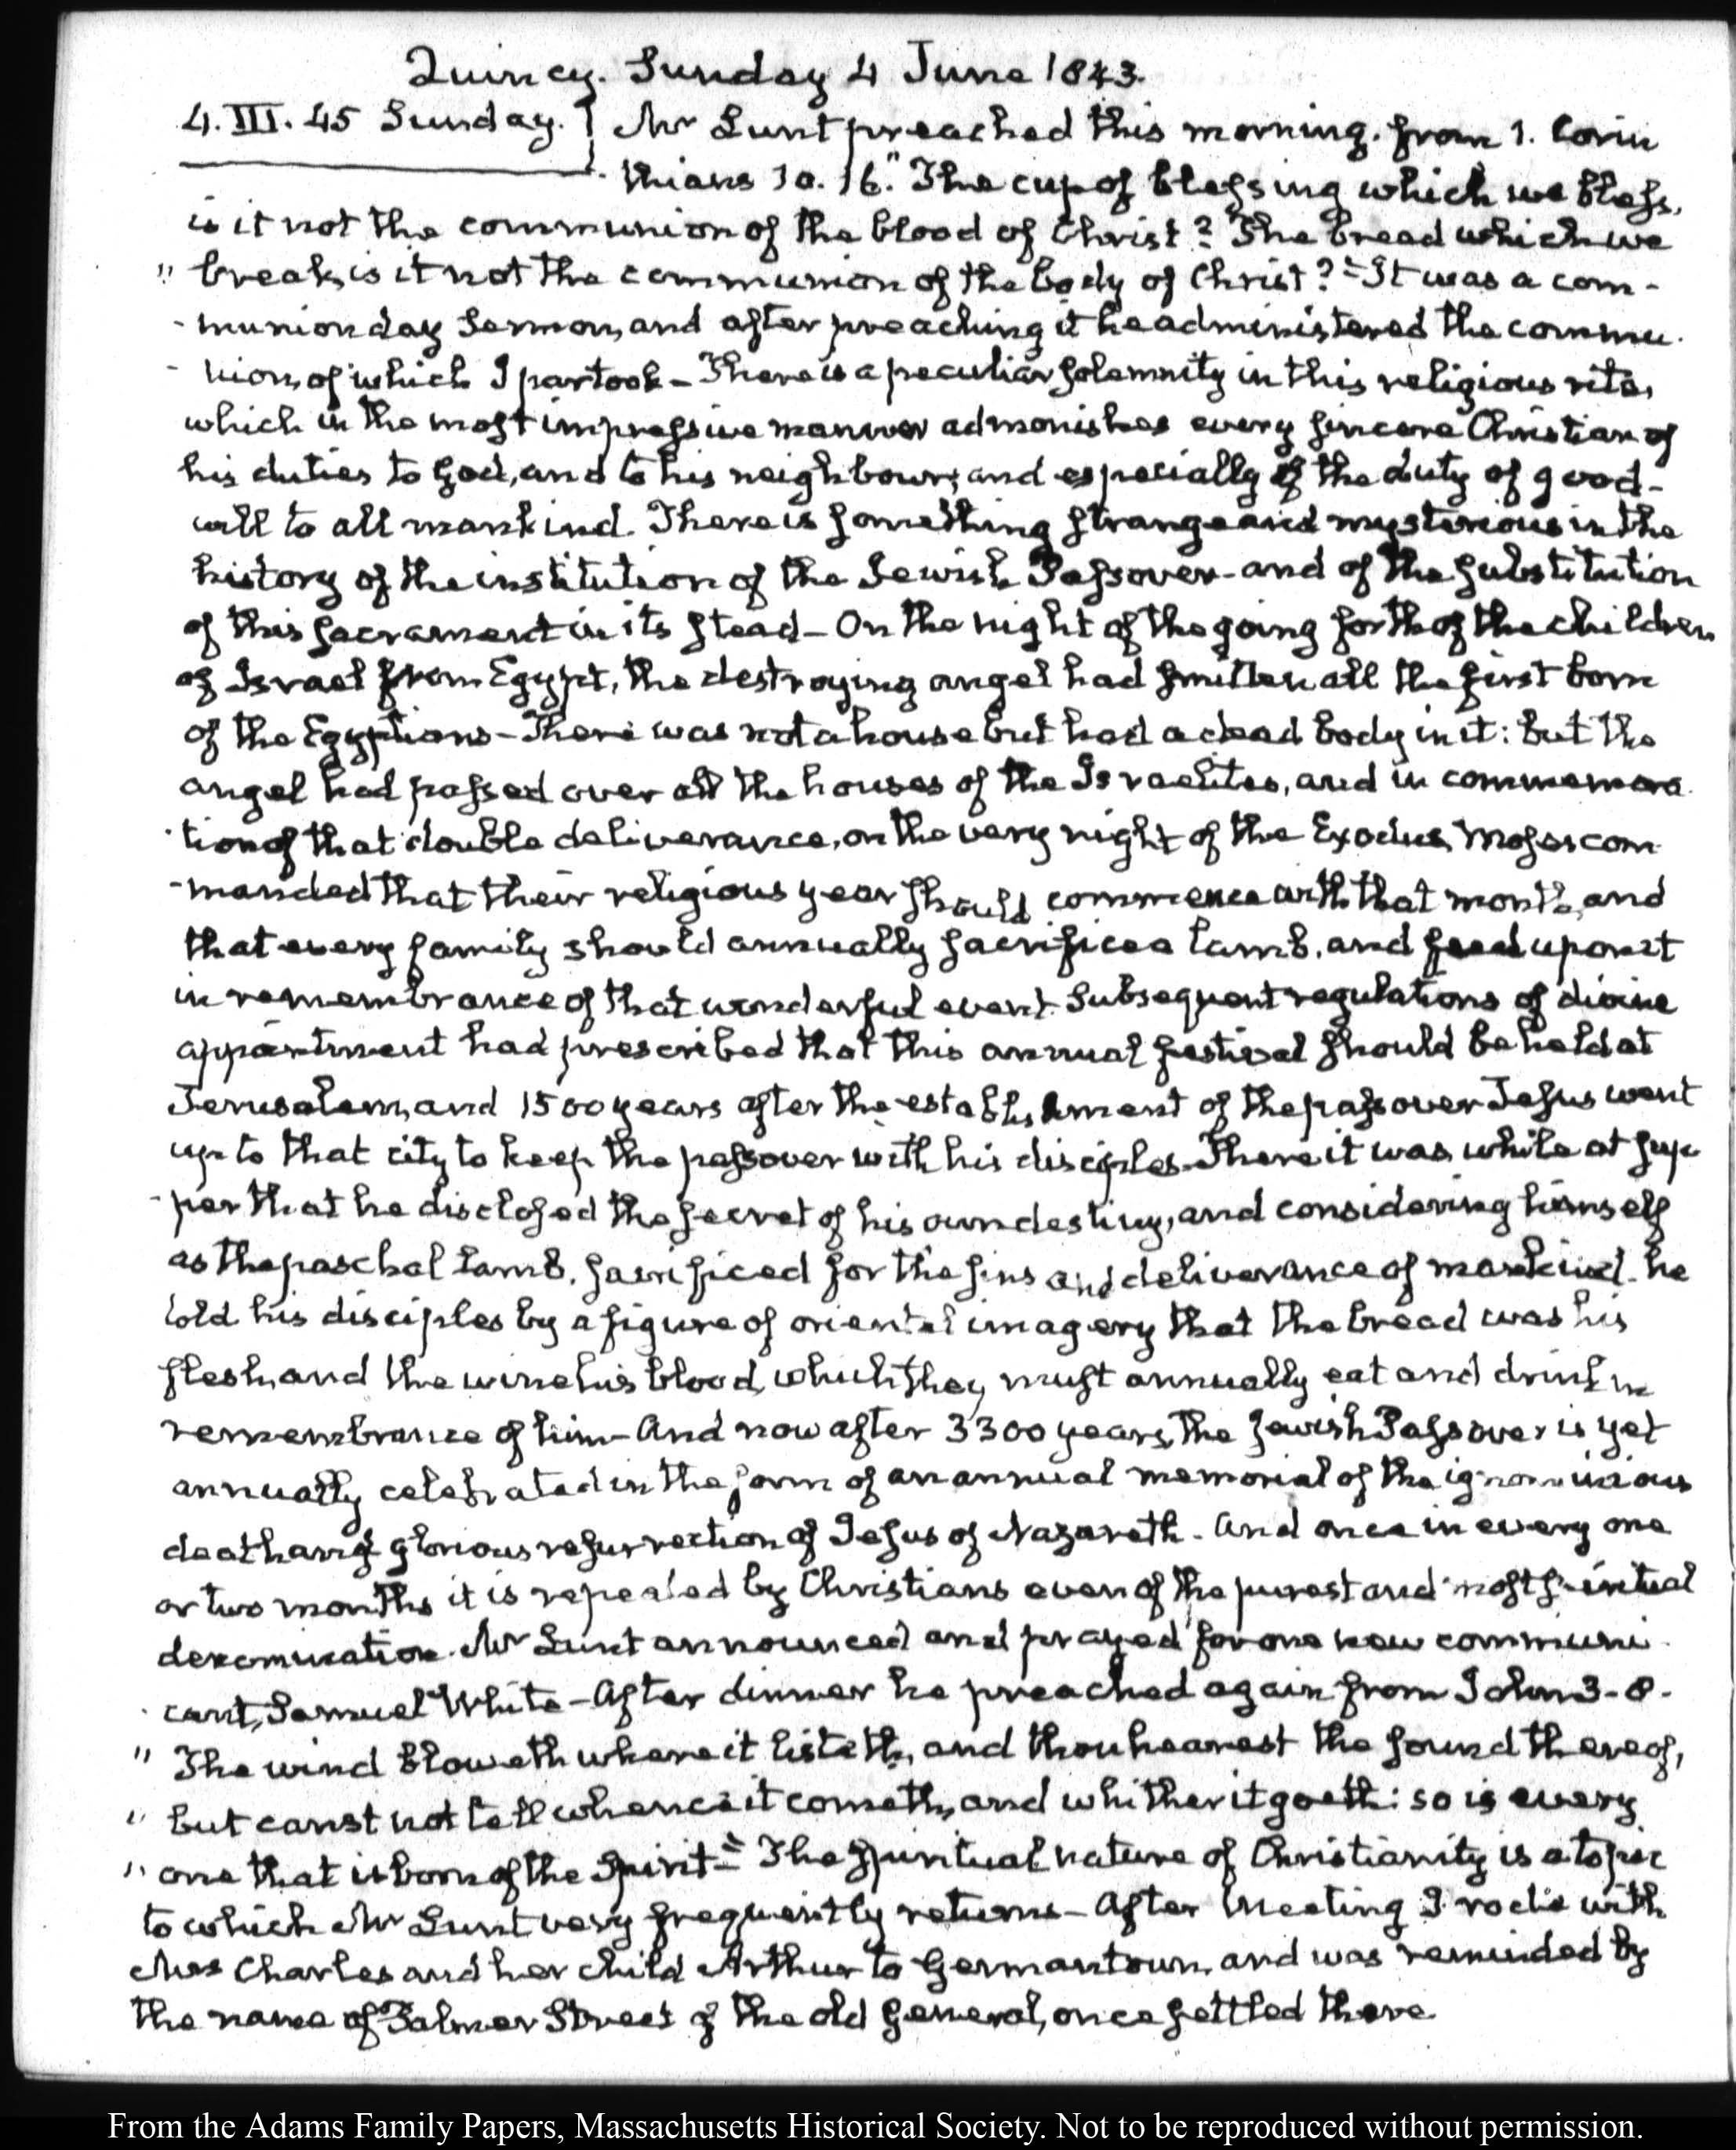 Quincy. Sunday 4 June 1843.
4. III. 45 Sunday. } Mr Lunt preached this morning. from 1. Corin
thians 10. 16. "The cup of blessing which we bless,
is it not the communion of the blood of Christ? The bread which we
" break, is it not the communion of the body of Christ?" It was a com-
-munion day Sermon, and after preaching it he administered the commu.
-nion, of which I partook – There is a peculiar solemnity in this religious rite,
which in the most impressive manner admonishes every sincere Christian of
his duties to God, and to his neighbour; and especially of the duty of good-
will to all mankind. There is something strange and mysterious in the
history of the institution of the Jewish Passover – and of the substitution
of this sacrament in its stead – On the night of the going forth of the children
of Israel from Egypt, the destroying angel had smitten all the first born
of the Egyptians – There was not a house but had a dead body in it: but the
angel had passed over all the houses of the Israelites, and in commemora
-tion of that double deliverance, on the very night of the Exodus, Moses com
-manded that their religious year should commence with that month, and
that every family should annually sacrifice a lamb, and feed upon it
in remembrance of that wonderful event. Subsequent regulations of divine
appointment had prescribed that this annual festival should be held at
Jerusalem, and 1500 years after the establishment of the passover Jesus went
up to that city to keep the passover with his disciples. There it was, while at sup
-per that he disclosed the secret of his own destiny, and considering himself
as the paschal Lamb, sacrificed for the sins and deliverance of mankind. he
told his disciples by a figure of oriental imagery that the bread was his
flesh, and the wine his blood, which they must annually eat and drink in
remembrance of him – And now after 3300 years, the Jewish Passover is yet
annually celebrated in the form of an annual memorial of the ignominious
death and glorious resurrection of Jesus of Nazareth. And once in every one
or two months it is repeated by Christians even of the purest and most spiritual
denomination. Mr Lunt announced and prayed for one new communi
-cant, Samuel White – After dinner he preached again from John 3-8.
" The wind bloweth where it listeth, and thou hearest the sound thereof,
" but canst not tell whence it cometh, and whither it goeth: so is every
" one that is born of the Spirit" – The spiritual nature of Christianity is a topic
to which Mr Lunt very frequently returns – After Meeting I rode with
Mrs Charles and her child Arthur to Germantown, and was reminded by
the name of Palmer Street of the old General, once settled there.
From the Adams Family Papers, Massachusetts Historical Society. Not to be reproduced without permission.